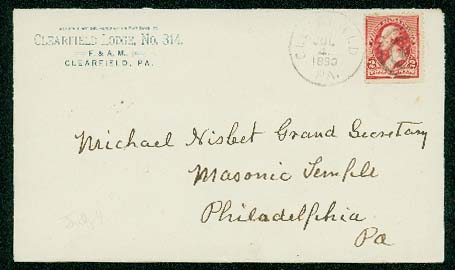 CLEARFIELD LODGE, No. 314.
F. & A. M.
CLEARFIELD, PA.
CLEARFIELD
JUL
1890
PA.
Michael Nisbet Grand Secretary
Masonic Temple
Philadelphia
Pa